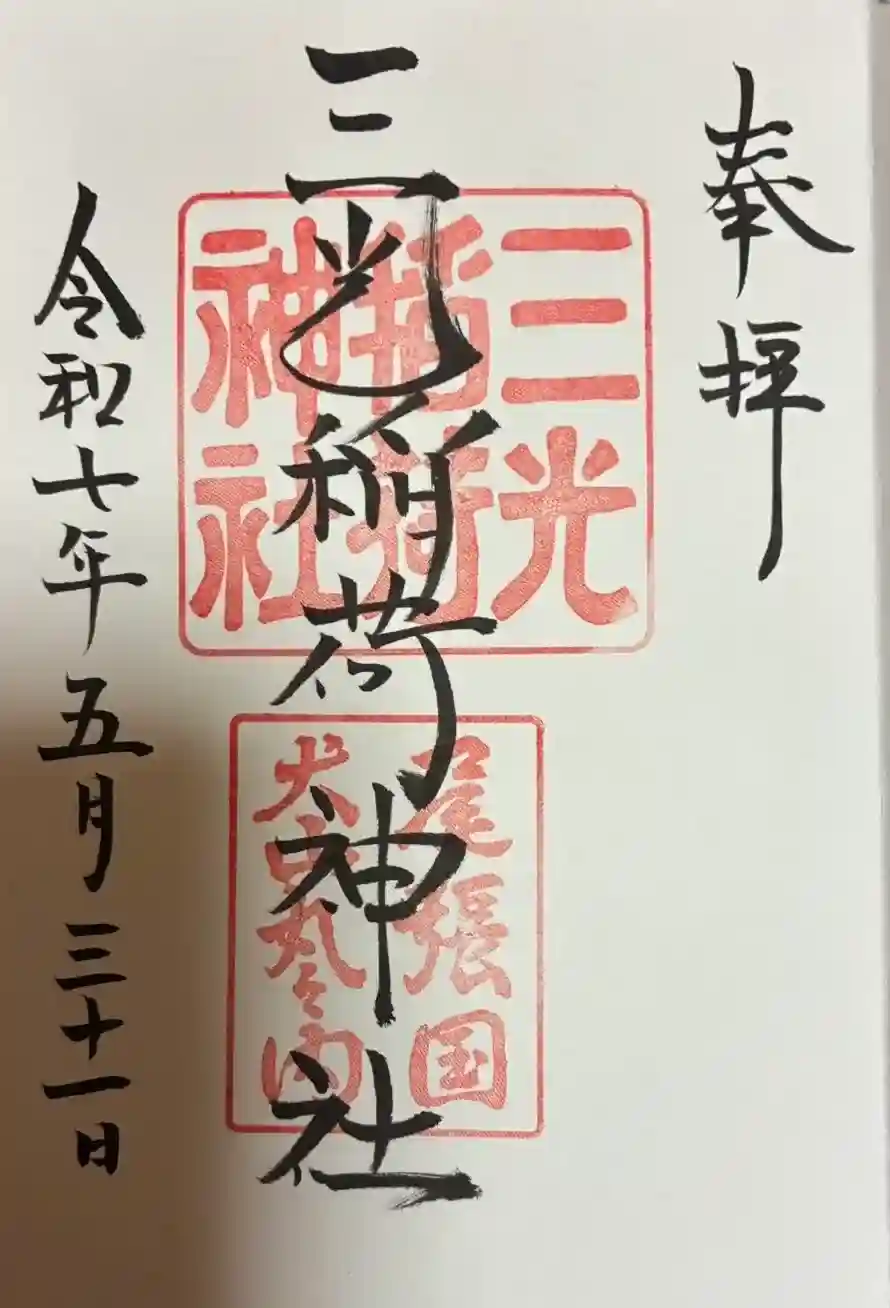 奉拝
三光稲荷神社
三光
稲荷
神社
尾張国
犬山丸内
令和七年五月三十一日